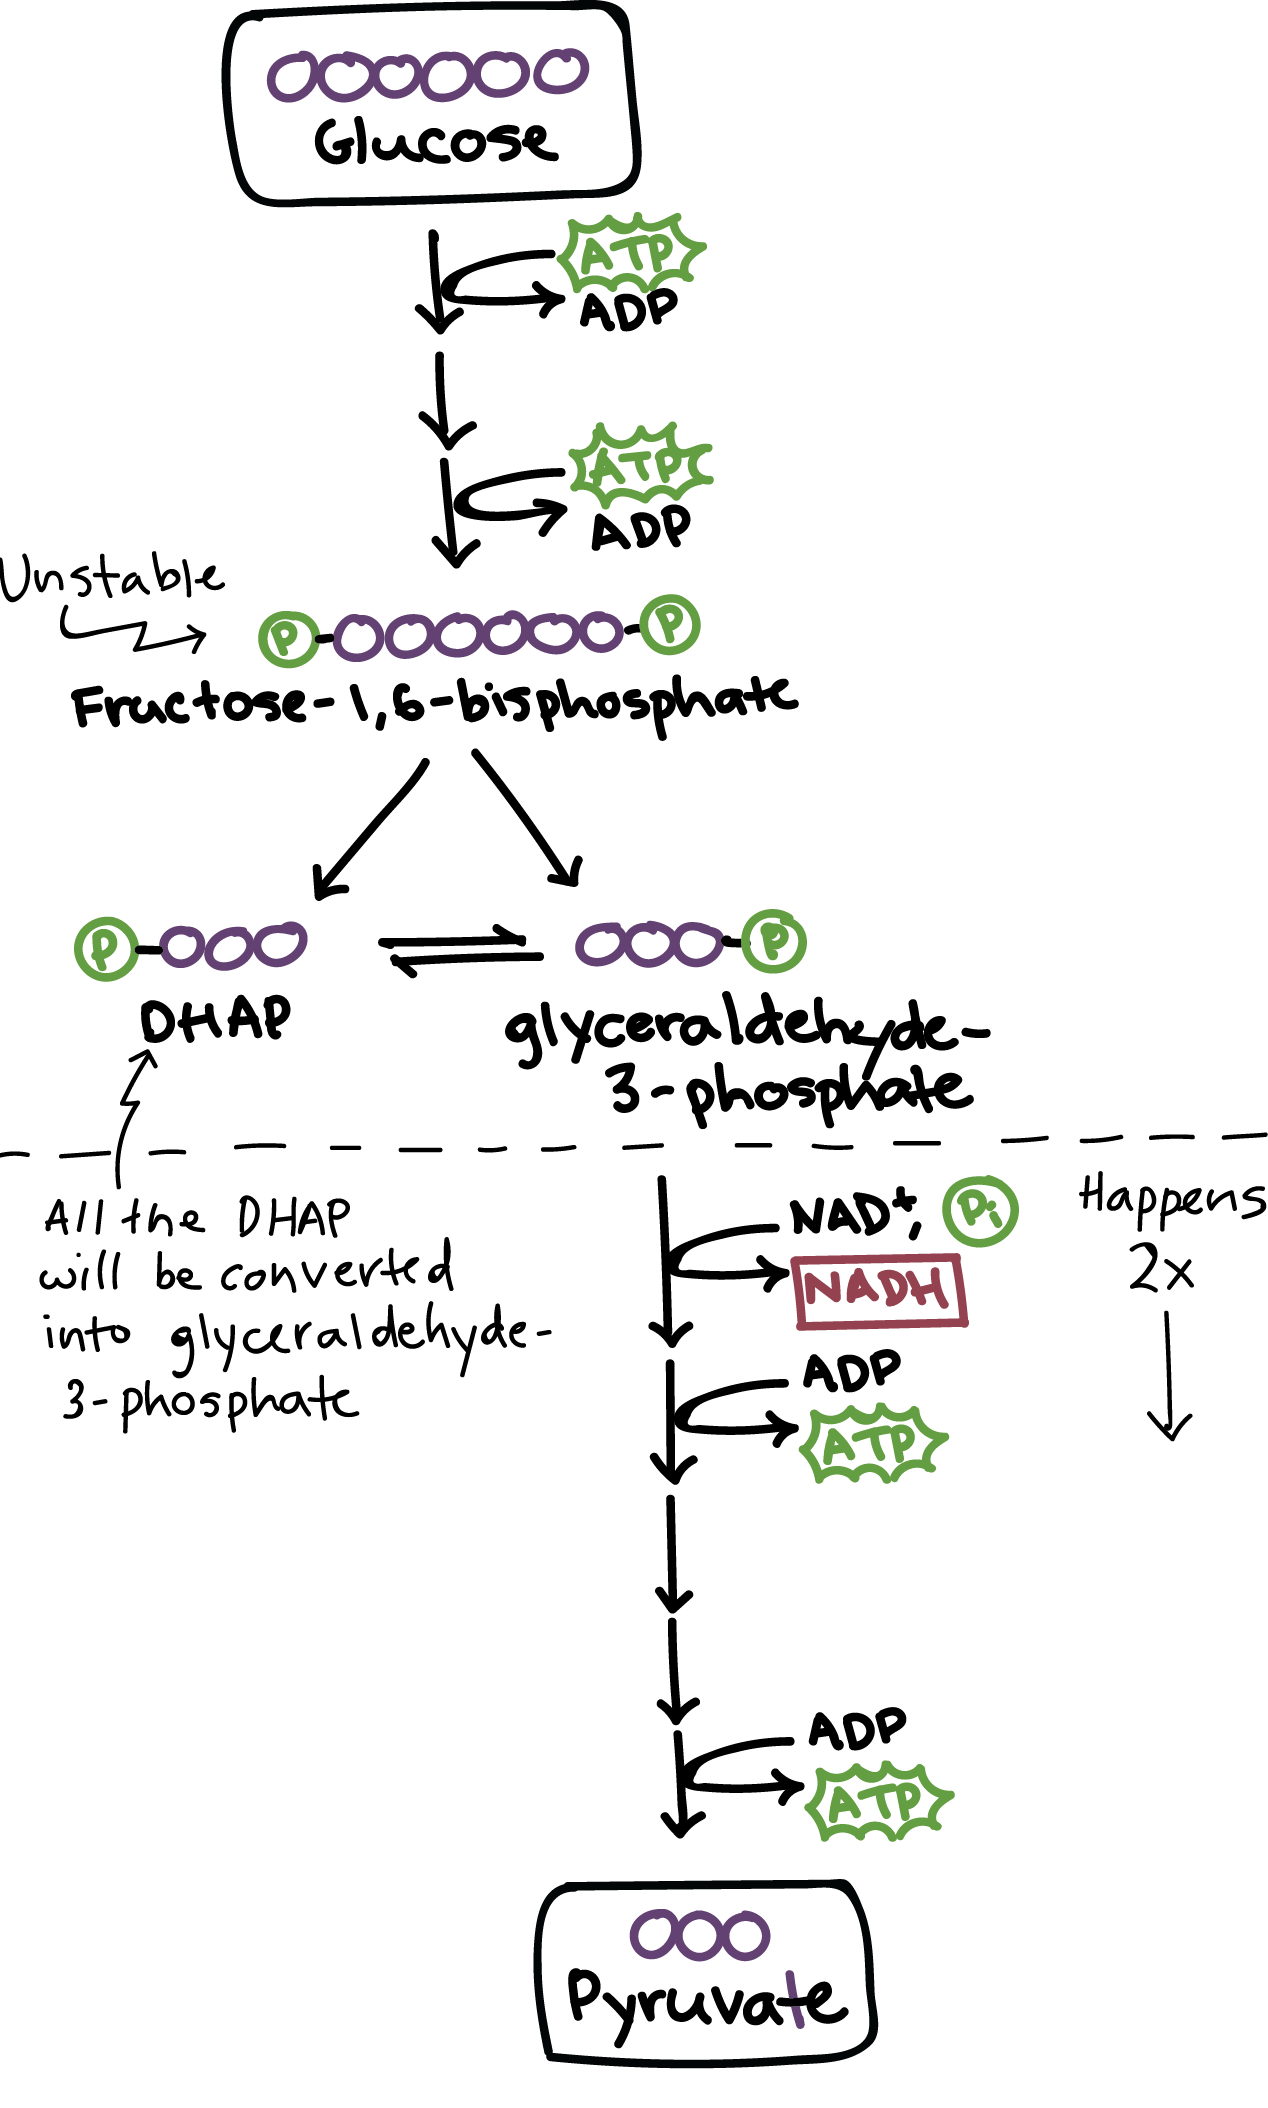 Glucose
ATP
ADP
ATP
ADP
Unstable
P
P
Fructose-1,6-bisphosphate
P
P
DHAP
glyceraldehyde-
3-phosphate
All the DHAP
will be converted
into glyceraldehyde-
3-phosphate
NAD+, Pi
NADH
Happens
2x
ADP
ATP
ADP
ATP
Pyruvate